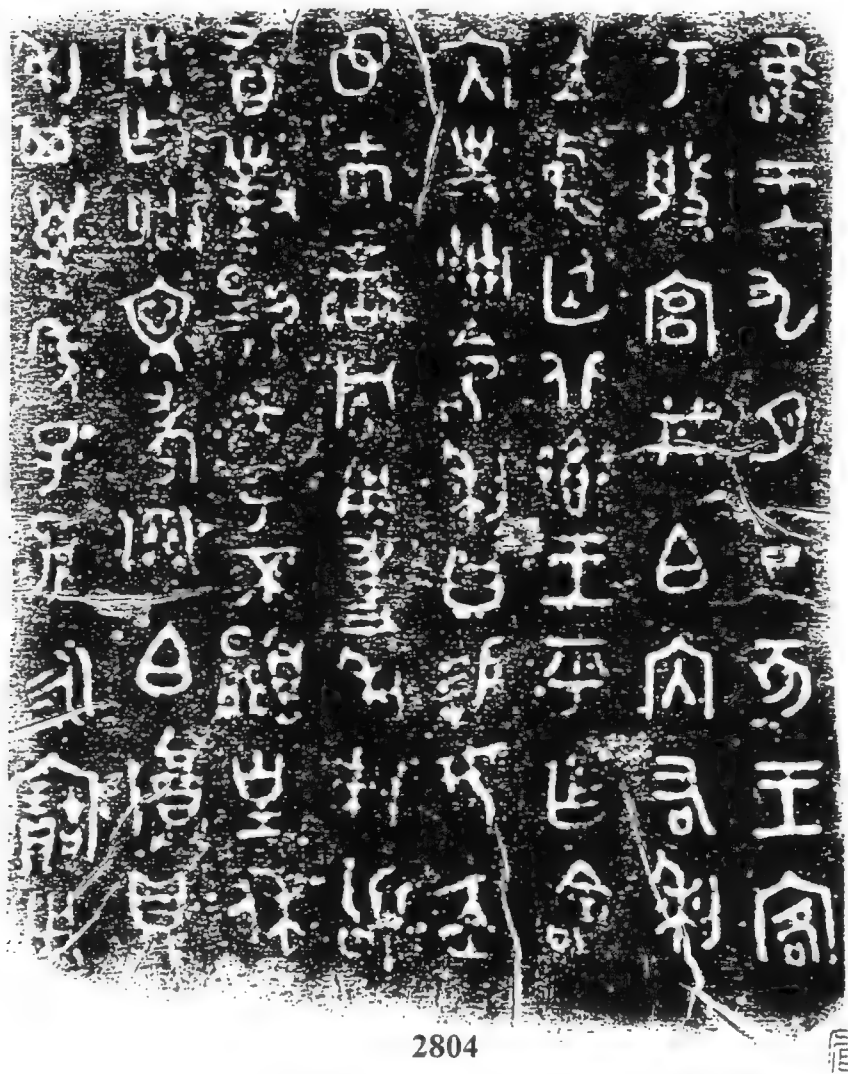 唯王九月丁亥王客
于般宮井白内右利
立中廷北鄉王乎乍命
内史冊令利曰易女赤
市䜌旂用事利拜稽
首對揚天子不顯皇休
用乍朕文考白尊鼎
利其萬年子孫永寶用
2804